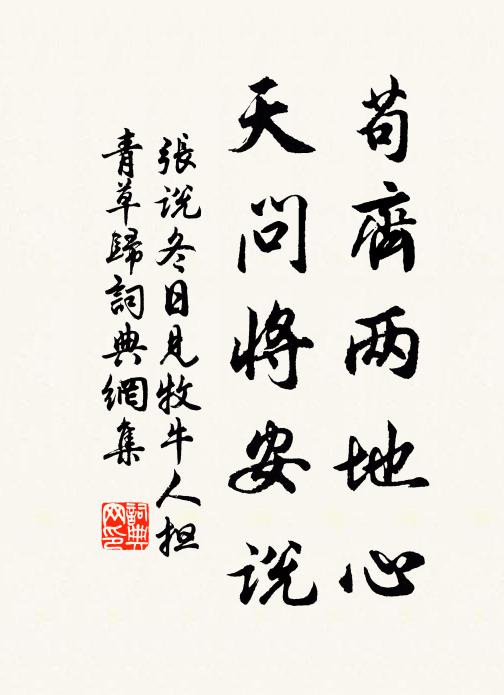 苟齊两地心
天問将安説
張説冬日見牧牛人担
青草歸詞典網集
詞典
网印